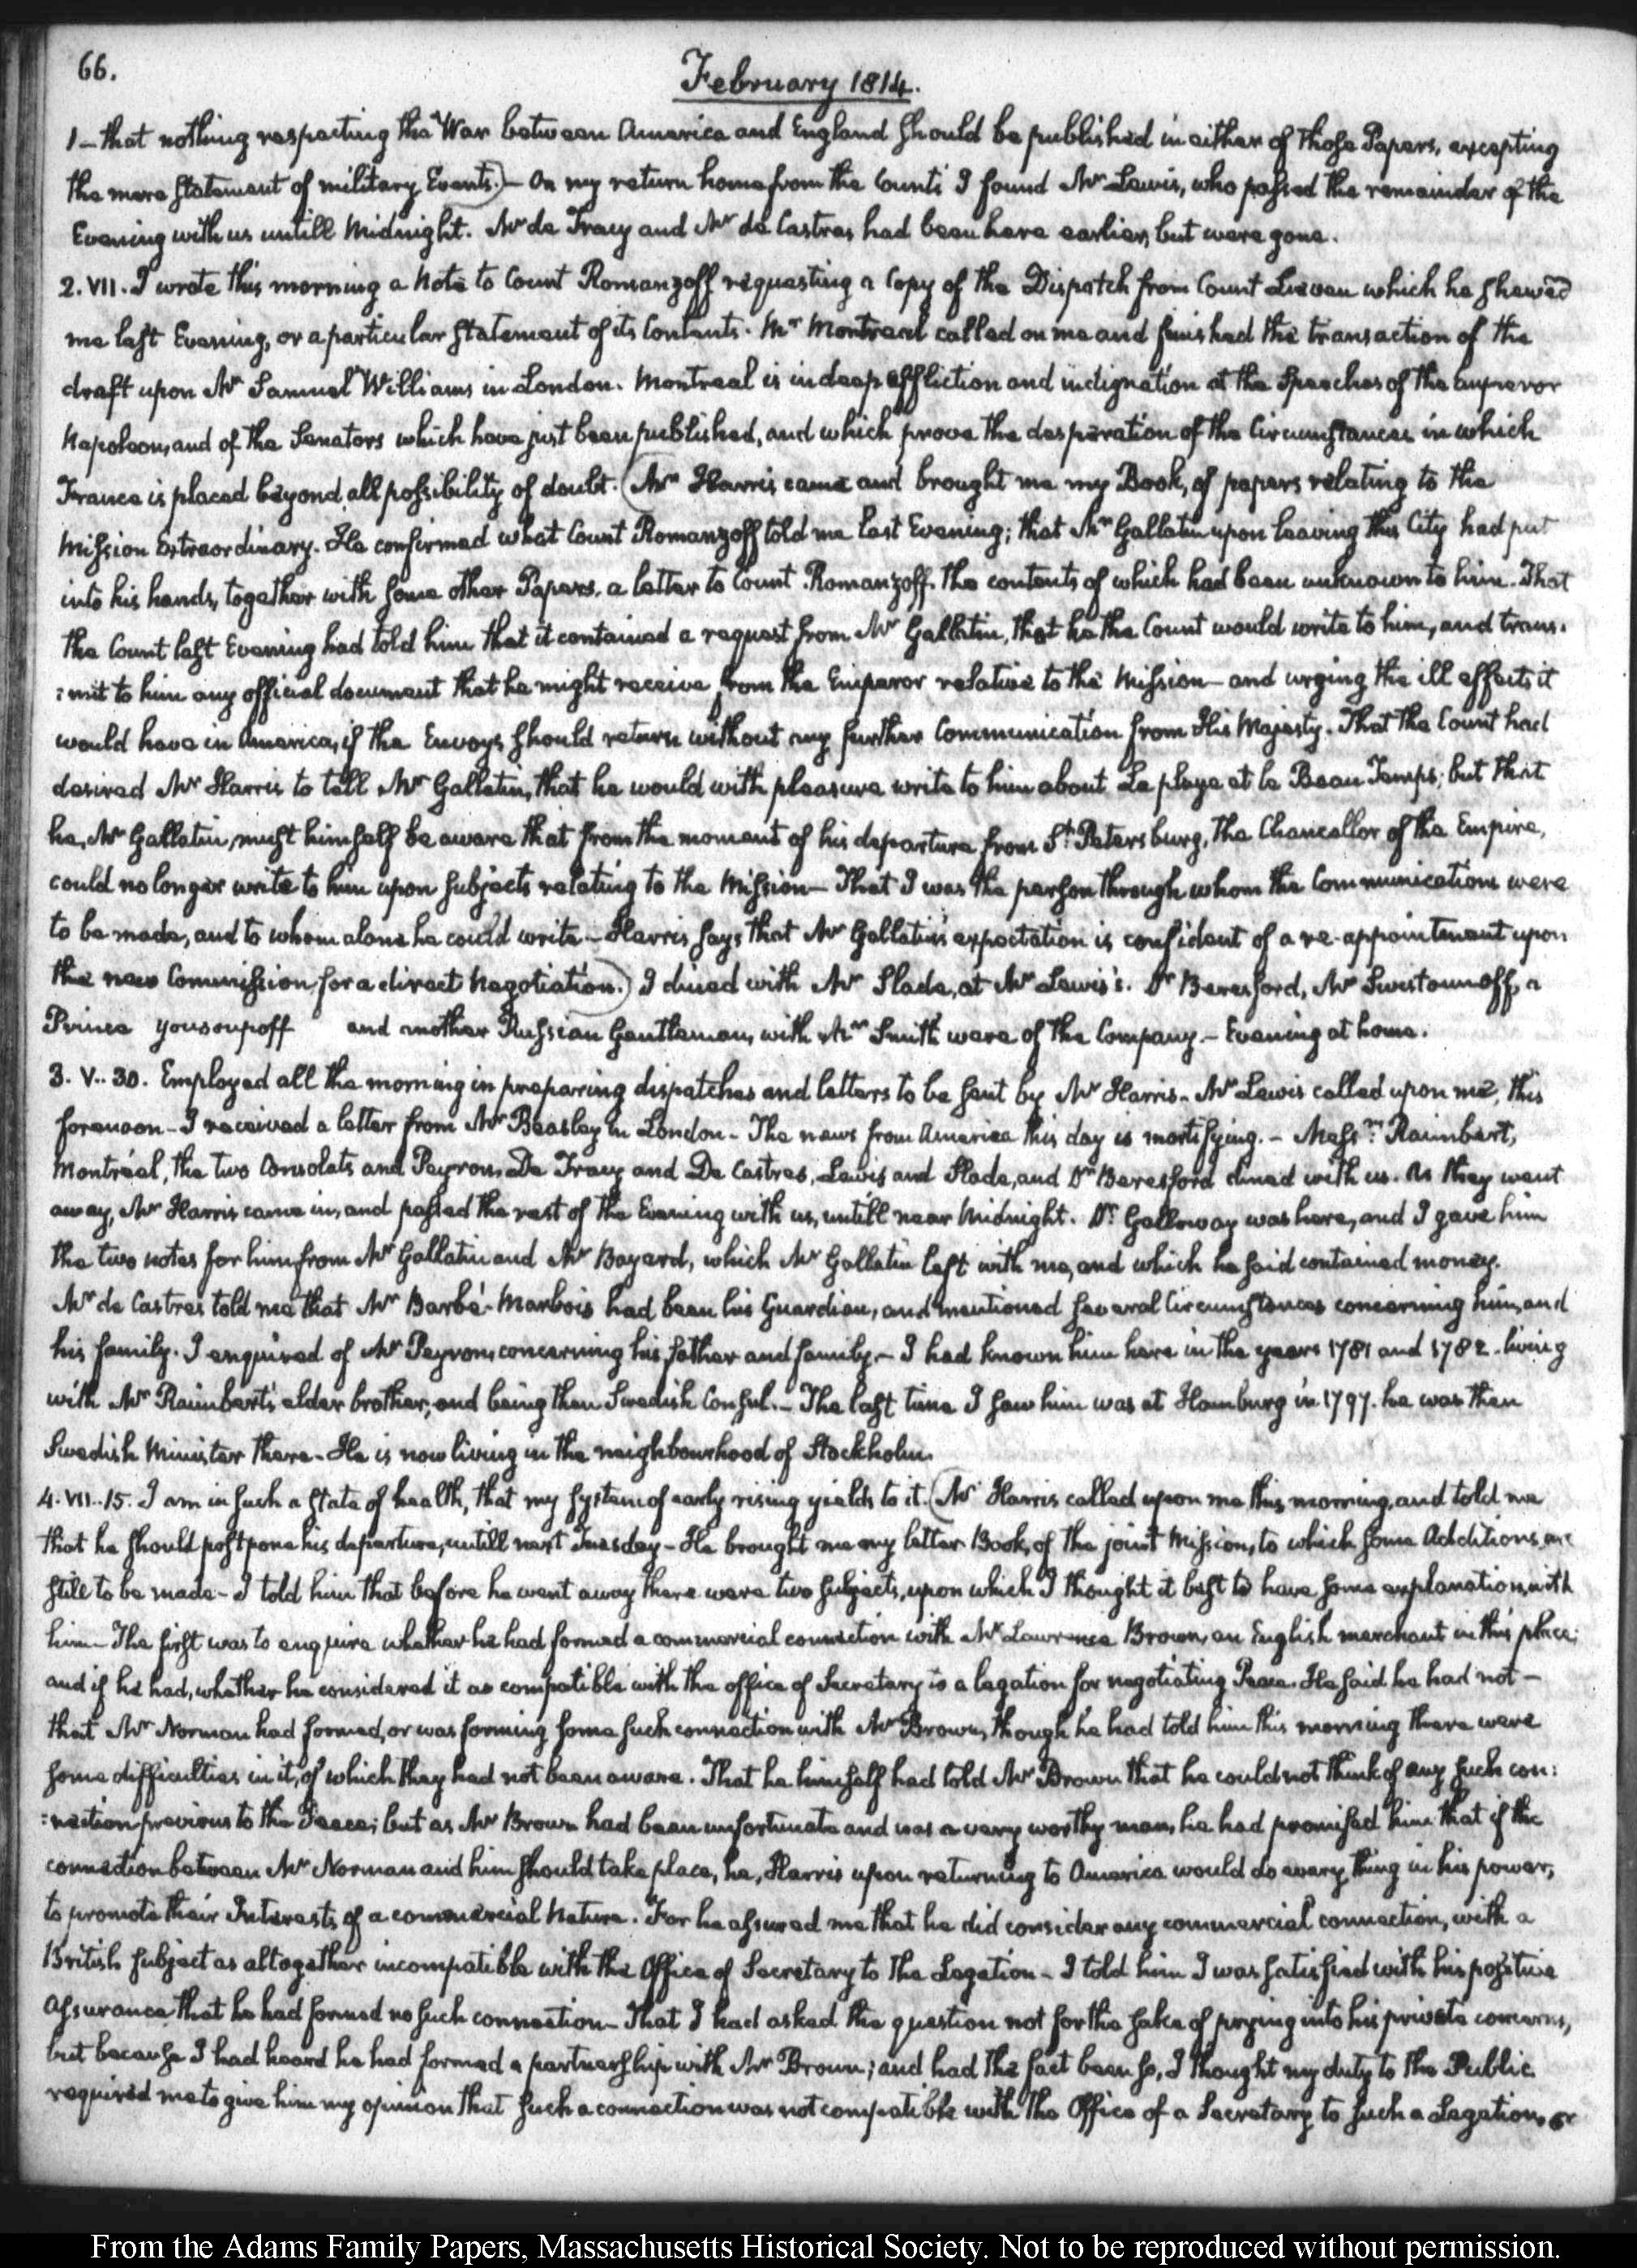 66.
February 1814.
1 - that nothing respecting the War between America and England should be published in either of those Papers, excepting
the mere statement of military Events.) - On my return home from the Count's I found Mr Lewis, who passed the remainder of the
Evening with us untill Midnight. Mr de Tracy and Mr de Castres had been here earlier, but were gone.
2. VII. I wrote this morning a Note to Count Romanzoff requesting a Copy of the Dispatch from Count Lieven which he shewed
me last Evening, or a particular statement of its Contents. Mr Montreal called on me and finished the transaction of the
draft upon Mr Samuel Williams in London. Montreal is in deep affliction and indignation at the Speeches of the Emperor
Napoleon, and of the Senators which have just been published, and which prove the desperation of the Circumstances in which
France is placed beyond all possibility of doubt. (Mr Harris came and brought me my Book, of papers relating to the
Mission Extraordinary. He confirmed what Count Romanzoff told me last Evening; that Mr Gallatin upon leaving this City had put
into his hands, together with some other Papers, a letter to Count Romanzoff. the contents of which had been unknown to him. That
the Count last Evening had told him that it contained a request from Mr Gallatin, that he the Count would write to him, and trans:
:mit to him any official document that he might receive from the Emperor relative to the Mission - and urging the ill effects it
would have in America, if the Envoys should return without any further Communication from His Majesty. That the Count had
desired Mr Harris to tell Mr Gallatin, that he would with pleasure write to him about La pluye et le Beau Temps; but that
he, Mr Gallatin, must himself be aware that from the moment of his departure from St. Petersburg, The Chancellor of the Empire,
could no longer write to him upon subjects relating to the Mission - That I was the person through whom the Communications were
to be made, and to whom alone he could write - Harris says that Mr Gallatin's expectation is confident of a re-appointment upon
the new Commission, for a direct Negotiation.) I dined with Mr Slade, at Mr Lewis's. Dr Beresford, Mr Swistounoff, a
Prince Yousoupoff and another Russian Gentleman, with Mr Smith were of the Company. - Evening at home.
3. V.. 30. Employed all the morning in preparing dispatches and letters to be sent by Mr Harris - Mr Lewis called upon me, this
forenoon - I received a letter from Mr Beasley in London - The news from America this day is mortifying. - Messrs. Raimbert,
Montréal, the two Consolats and Peyron, De Tracy and De Castres, Lewis and Slade, and Dr Beresford dined with us. As they went
away, Mr Harris came in, and passed the rest of the Evening with us, untill near Midnight. Dr. Galloway was here, and I gave him
the two notes for him from Mr Gallatin and Mr Bayard, which Mr Gallatin left with me, and which he said contained money.
Mr de Castres told me that Mr Barbé-Marbois had been his Guardian, and mentioned several Circumstances concerning him, and
his family. I enquired of Mr Peyron, concerning his father and family - I had known him here in the years 1781 and 1782. living
with Mr Raimbert's elder brother, and being then Swedish Consul. - The last time I saw him was at Hamburg in 1797. he was then
Swedish Minister there - He is now living in the neighbourhood of Stockholm.
4. VII.. 15. I am in such a state of health, that my system of early rising yields to it. (Mr Harris called upon me this morning, and told me
that he should postpone his departure, untill next Tuesday - He brought me my letter Book, of the joint Mission, to which some Additions are
still to be made - I told him that before he went away there were two subjects, upon which I thought it best to have some explanation, with
him - The first was to enquire whether he had formed a commercial connection with Mr Lawrence Brown, an English merchant in this place;
and if he had, whether he considered it as compatible with the office of Secretary to a legation for negotiating Peace. He said he had not -
that Mr Norman had formed, or was forming some such connection with Mr Brown, though he had told him this morning there were
some difficulties in it, of which they had not been aware. That he himself had told Mr Brown that he could not think of any such con:
:nection previous to the Peace; but as Mr Brown had been unfortunate and was a very worthy man, he had promised him that if the
connection between Mr Norman and him should take place, he, Harris upon returning to America would do every thing in his power,
to promote their Interests of a commercial Nature. For he assured me that he did consider any commercial connection, with a
British subject as altogether incompatible with the Office of Secretary to the Legation - I told him I was satisfied with his positive
assurance that he had formed no such connection - That I had asked the question not for the sake of prying into his private concerns,
but because I had heard he had formed a partnership with Mr Brown; and had the fact been so, I thought my duty to the Public
required me to give him my opinion that such a connection was not compatible with the Office of a Secretary to such a Legation, or
From the Adams Family Papers, Massachusetts Historical Society. Not to be reproduced without permission.